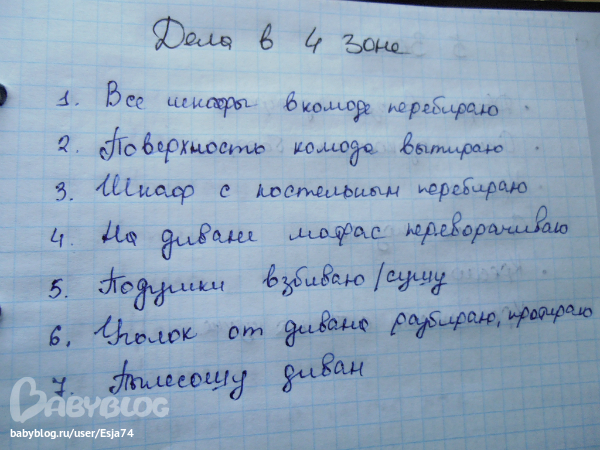 Дела в 4 зоне
1. Все шкафы в комоде перебираю.
2. Поверхность комода вытираю.
3. Шкаф с постельным перебираю.
4. На диване матрас переворачиваю
5. Подушки взбиваю/сушу
6. Уголок от дивана разбираю, протираю
7. Пылесошу диван
BABYBLOG
babyblog.ru/user/Esja74